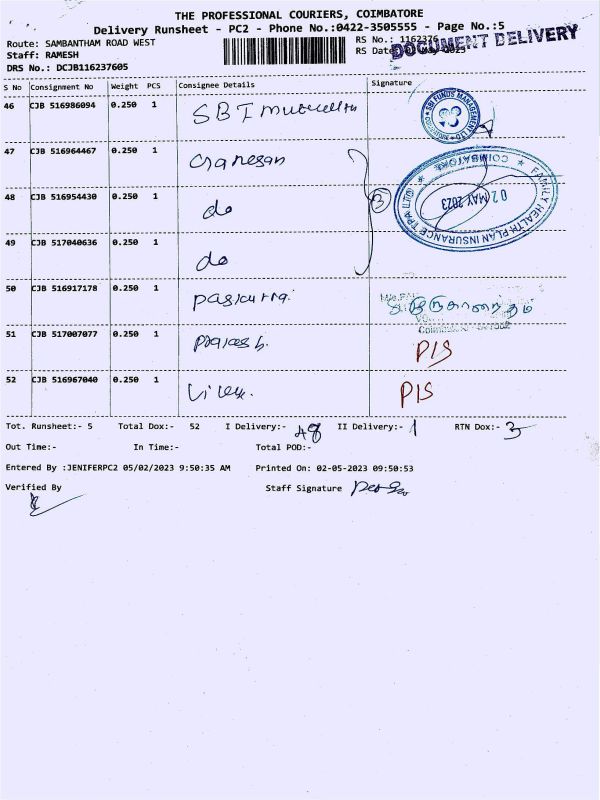 THE PROFESSIONAL COURIERS, COIMBATORE
Delivery Runsheet - PC2 - Phone No.:0422-3505555 - Page No.:5
Route: SAMBANTHAM ROAD WEST
RS No.: 1162376
Staff: RAMESH
RS Date
May 2023
DOCUMENT DELIVERY
DRS No.: DCJB116237605
S No Consignment No Weight PCS Consignee Details Signature
46 CJB 516986094 0.250 1 SBI
SBI FUNDS MANAGEMENT LTD
47 CJB 516964467 0.250 1 Ganesan
48 CJB 516954430 0.250 1 do
3
FAMILY HEALTH PLAN INSURANCE TPA LTD
COIMBATORE
02 MAY 2023
49 CJB 517040636 0.250 1 do
50 CJB 516917178 0.250 1
51 CJB 517007077 0.250 1 PIS
52 CJB 516967040 0.250 1 PIS
Tot. Runsheet:- 5 Total Dox:- 52 I Delivery:- 48 II Delivery:- 1 RTN Dox:- 3
Out Time:- In Time:- Total POD:-
Entered By :JENIFERPC2 05/02/2023 9:50:35 AM Printed On: 02-05-2023 09:50:53
Verified By Staff Signature